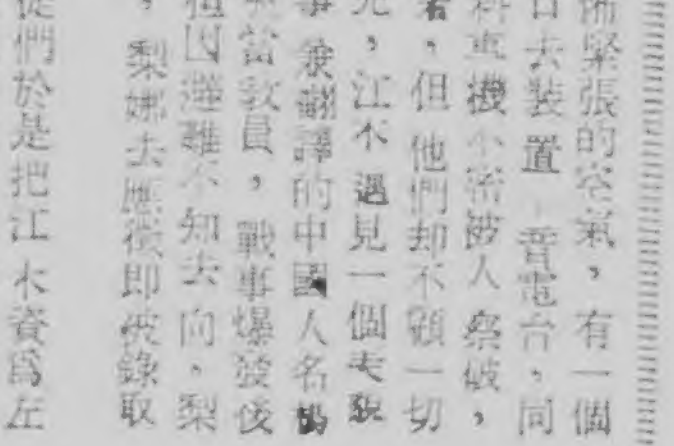 佈緊張的空氣，有一個
日去裝置 音電台，同
料事機不密被人察破，
者，但他們却不顧一切
，江木遇見一個
事兼翻譯的中國人名
當敎員，戰事爆發後
祖因避難不知去向，梨
，梨娜去應徵即被錄取
從們於是把江木資爲左